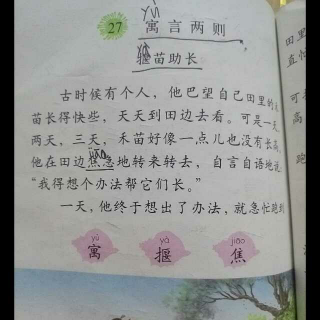 yù
27 寓言两则
揠苗助长
古时候有个人，他巴望自己田里的禾
苗长得快些，天天到田边去看。可是一天，
两天，三天，禾苗好像一点儿也没有长高，
他在田边焦急地转来转去，自言自语地说：
“我得想个办法帮它们长。”
一天，他终于想出了办法，就急忙跑到
yù yà jiāo
寓 揠 焦
田里
直忙
可
高
跑